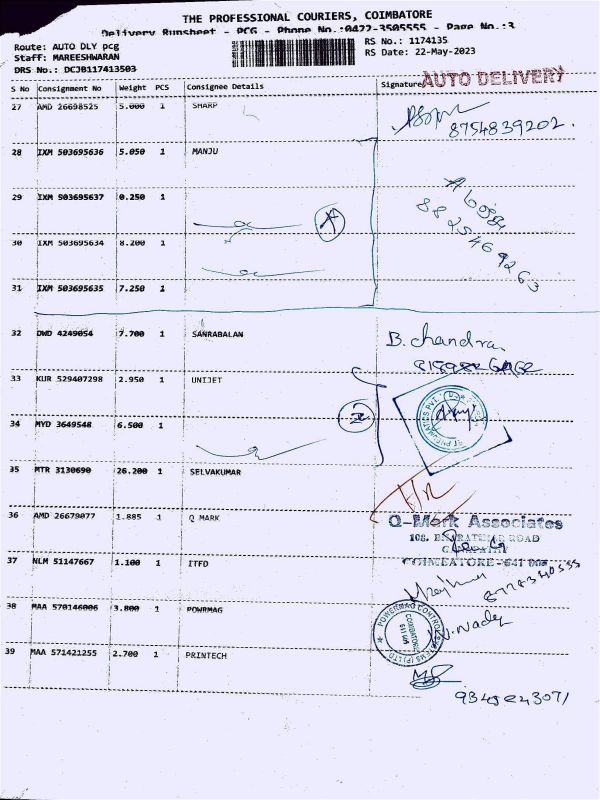 THE PROFESSIONAL COURIERS, COIMBATORE
Delivery Runsheet - PCG - Phone No.:0422-3505555 - Page No.:3
Route: AUTO DLY pcg RS No.: 1174135
Staff: MAREESHWARAN RS Date: 22-May-2023
DRS No.: DCJB117413503
S No Consignment No Weight PCS Consignee Details Signature AUTO DELIVERY
27 AMD 26698525 5.000 1 SHARP
8754839202.
28 IXM 503695636 5.050 1 MANJU
29 IXM 503695637 0.250 1
8825469263
30 IXM 503695634 8.200 1
31 IXM 503695635 7.250 1
32 DWD 4249054 7.700 1 SANRABALAN B. chandra
33 KUR 529407298 2.950 1 UNIJET
34 MYD 3649548 6.500 1
35 MTR 3130690 26.200 1 SELVAKUMAR
36 AMD 26679077 1.885 1 Q MARK Q-Mark Associates
108, ROAD
37 NLM 51147667 1.100 1 ITFD COIMBATORE - 641
38 MAA 570146006 3.800 1 POWRMAG
POWERMAG CONTROL SYSTEMS (P) LTD
COIMBATORE
39 MAA 571421255 2.700 1 PRINTECH